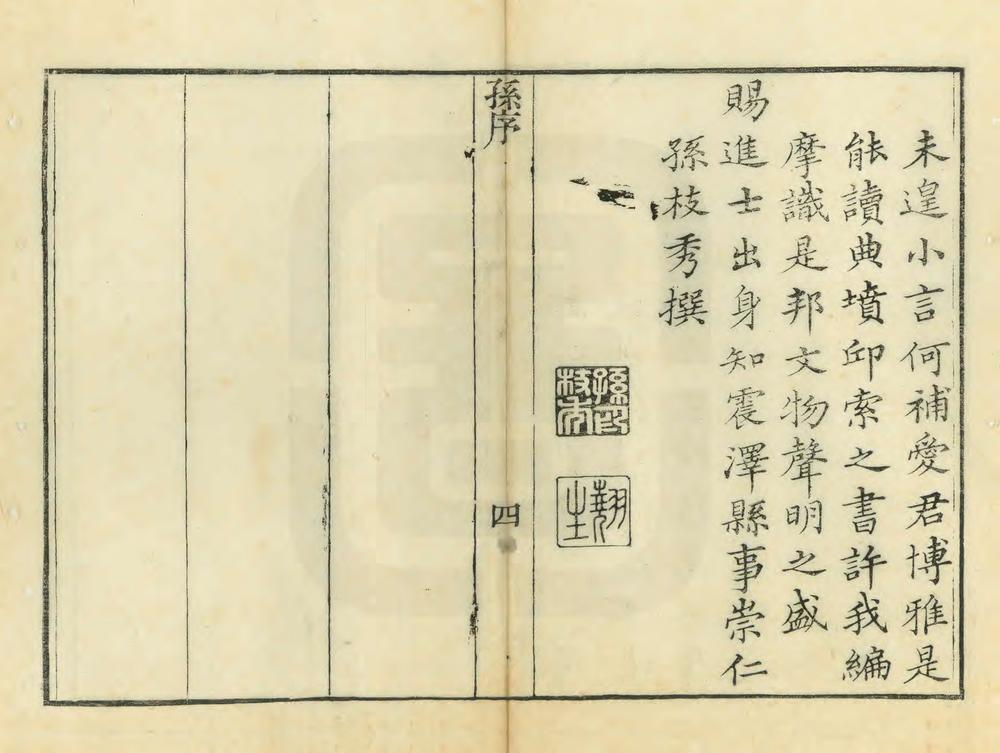 未遑小言何補愛君博雅是
能讀典墳邱索之書許我編
摩識是邦文物聲明之盛
賜進士出身知震澤縣事崇仁
孫枝秀撰
孫印枝秀
孫序
四